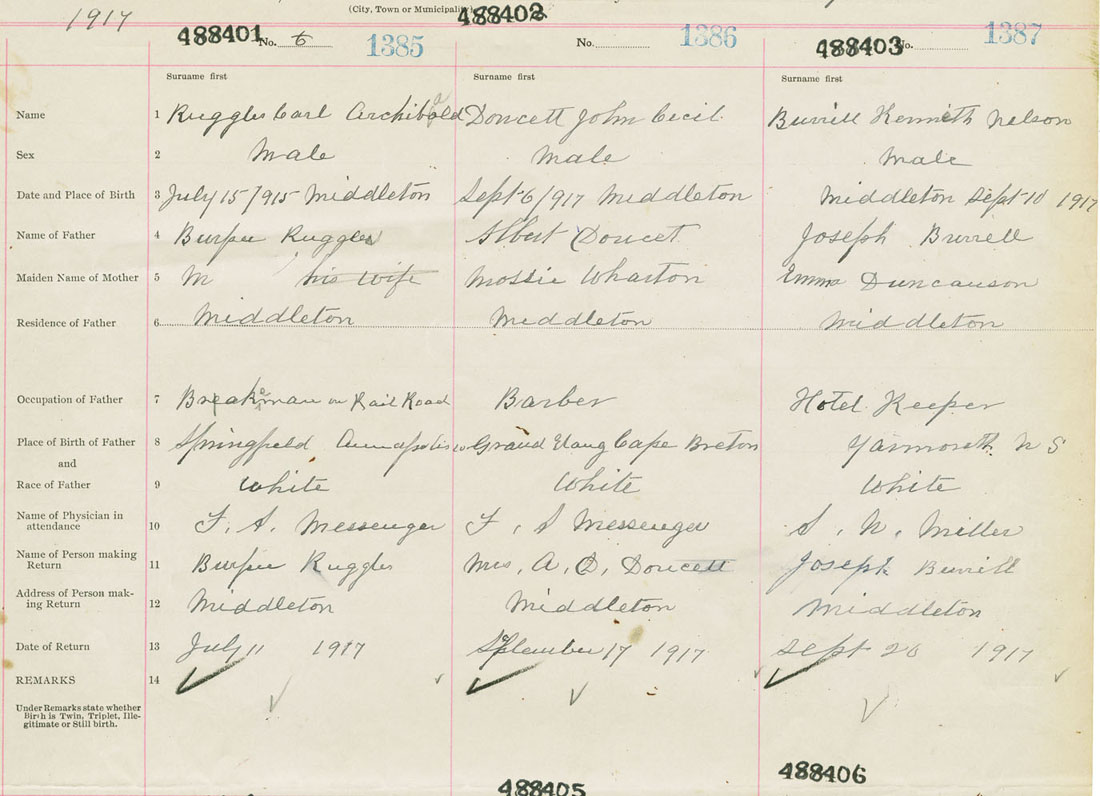 (City, Town or Municipality)
1917
488401 No. 6 1385
488402 No. 1386
488403 No. 1387
Surname first Surname first Surname first
Name 1 Ruggles Carl Archibald Doucett John Cecil Burrell Kenneth Nelson
Sex 2 Male Male Male
Date and Place of Birth 3 July 15/1915 Middleton Sept 6/1917 Middleton Middleton Sept 10 1917
Name of Father 4 Burpee Ruggles Albert Doucet Joseph Burrell
Maiden Name of Mother 5 M his wife Mossie Wharton Emma Duncanson
Residence of Father 6 Middleton Middleton Middleton
Occupation of Father 7 Breakman on Rail Road Barber Hotel Keeper
Place of Birth of Father 8 Springfield Annapolis co Grand Cape Breton Yarmouth N S
and
Race of Father 9 White White White
Name of Physician in
attendance 10 F. S. Messenger F. S Messenger S. N. Miller
Name of Person making
Return 11 Burpee Ruggles Mrs. A. D. Doucett Joseph Burrell
Address of Person mak-
ing Return 12 Middleton Middleton Middleton
Date of Return 13 July 11 1917 September 17 1917 Sept 20 1917
REMARKS 14
Under Remarks state whether
Birth is Twin, Triplet, Ille-
gitimate or Still birth.
488405 488406